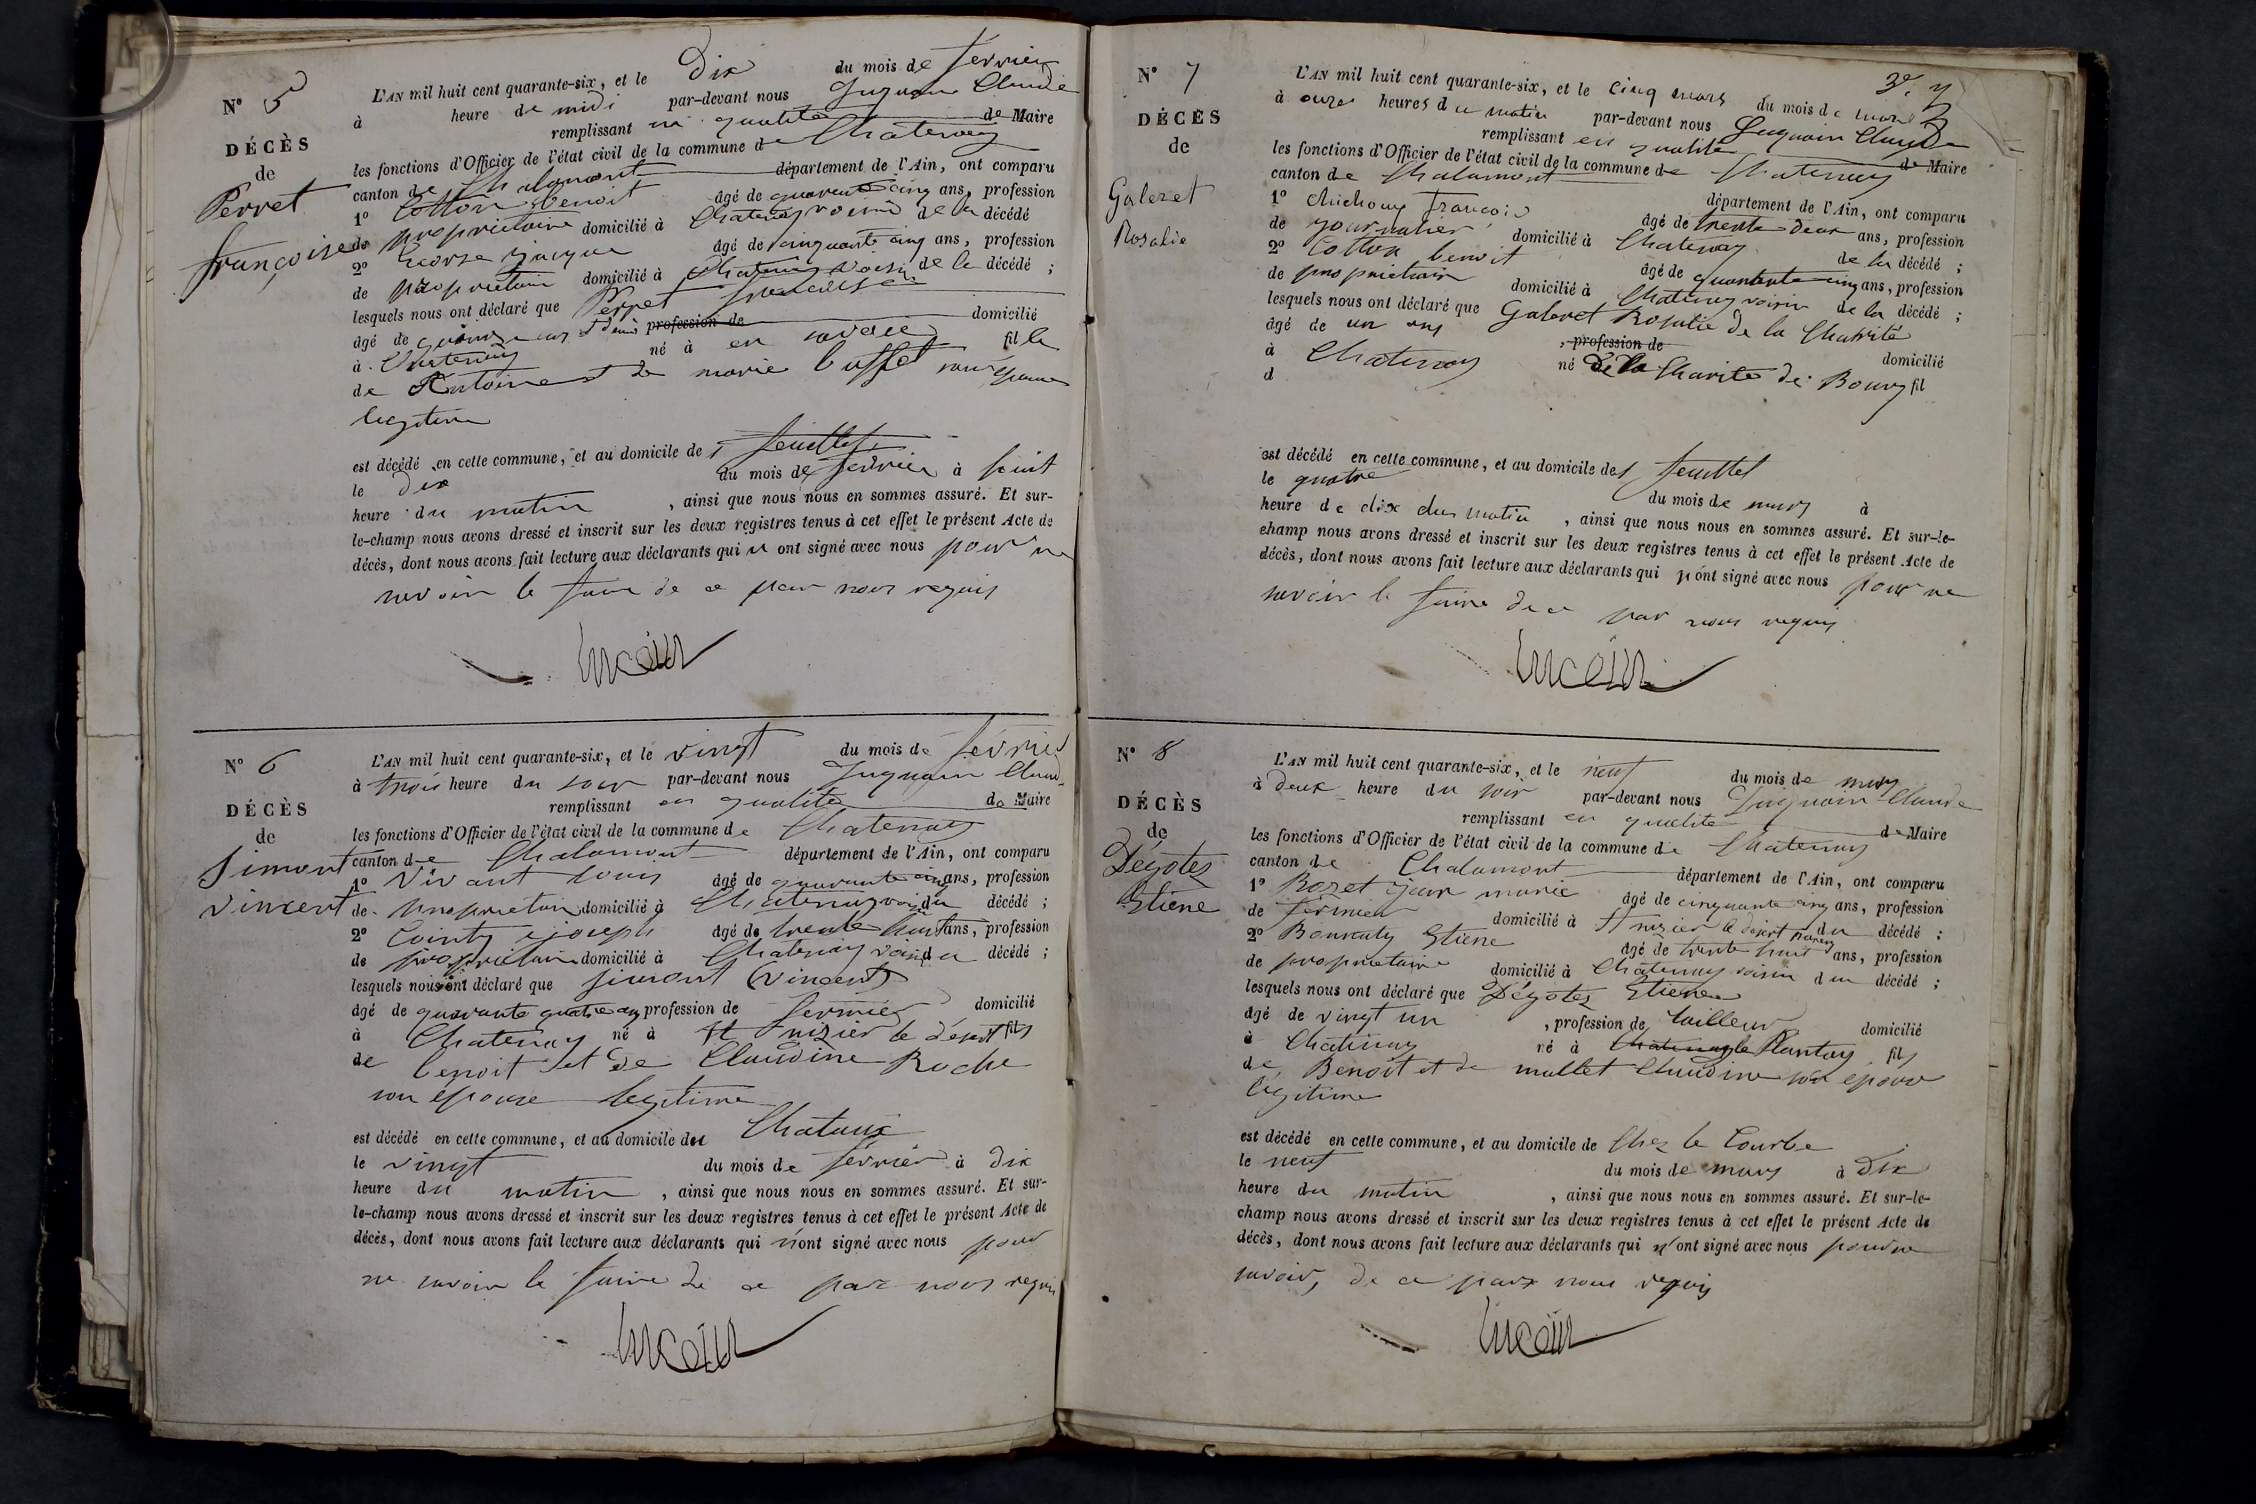 N° 5
DÉCÈS
de
Perret
françoise
L'AN mil huit cent quarante-six, et le Dix du mois de février
à heure de midi par-devant nous Claude
remplissant en qualité de Maire
les fonctions d'Officier de l'état civil de la commune de Châtenay
canton de Chalamont département de l'Ain, ont comparu
1° Cotton benoit âgé de quarante cinq ans, profession
de propriétaire domicilié à Chatenay voisin de la décédé
2° jacque âgé de cinquante cinq ans, profession
de propriétaire domicilié à Chatenay voisin de la décédé ;
lesquels nous ont déclaré que Perret francoise
âgé de ans et demi profession de domicilié
à Chatenay né à en savoie fille
de Antoine et de marie buffet son épouse
legitime
est décédé en cette commune, et au domicile des feuillets
le dix du mois de fevrier à
heure du matin , ainsi que nous nous en sommes assuré. Et sur-
le-champ nous avons dressé et inscrit sur les deux registres tenus à cet effet le présent Acte de
décès, dont nous avons fait lecture aux déclarants qui n ont signé avec nous pour ne
savoir le faire de ce par nous requis
N° 6
DÉCÈS
de
Simont
vincent
L'AN mil huit cent quarante-six, et le vingt du mois de février
à trois heure du soir par-devant nous
remplissant en qualité de Maire
les fonctions d'Officier de l'état civil de la commune de Chatenay
canton de Chalamont département de l'Ain, ont comparu
1° Vivant louis âgé de quarante cinq ans, profession
de propriétaire domicilié à Chatenay voisin du décédé ;
2° Cointy joseph âgé de trente huit ans, profession
de propriétaire domicilié à Chatenay voisin du décédé ;
lesquels nous ont déclaré que simont vincent
âgé de quarante quatre ans profession de fermier domicilié
à Chatenay né à St nizier le désert fils
de benoit et de Claudine Roche
son épouse legitime
est décédé en cette commune, et au domicile du Chataux
le vingt du mois de février à dix
heure du matin , ainsi que nous nous en sommes assuré. Et sur-
le-champ nous avons dressé et inscrit sur les deux registres tenus à cet effet le présent Acte de
décès, dont nous avons fait lecture aux déclarants qui n'ont signé avec nous pour
ne savoir le faire de ce par nous requis
3e
N° 7
DÉCÈS
de
Galeret
Rosalie
L'AN mil huit cent quarante-six, et le cinq mars du mois de mars
à onze heures du matin par-devant nous Claude
remplissant en qualité de Maire
les fonctions d'Officier de l'état civil de la commune de Chatenay
canton de Chalamont département de l'Ain, ont comparu
1° françois âgé de trente deux ans, profession
de journalier domicilié à Chatenay de la décédé ;
2° Cotton benoit âgé de quarante cinq ans, profession
de propriétaire domicilié à Chatenay voisin de la décédé ;
lesquels nous ont déclaré que Galeret Rosalie de la Charité
âgé de un ans , profession de domicilié
à Chatenay né de la Charité de Bourg fil
d
est décédé en cette commune, et au domicile des feuillet
le quatre du mois de mars à
heure de dix du matin , ainsi que nous nous en sommes assuré. Et sur-le-
champ nous avons dressé et inscrit sur les deux registres tenus à cet effet le présent Acte de
décès, dont nous avons fait lecture aux déclarants qui n'ont signé avec nous pour ne
savoir le faire de ce par nous requis
N° 8
DÉCÈS
de
Dégotez
Etiene
L'AN mil huit cent quarante-six, et le neuf du mois de mars
à deux heure du soir par-devant nous Claude
remplissant en qualité de Maire
les fonctions d'Officier de l'état civil de la commune de Chatenay
canton de Chalamont département de l'Ain, ont comparu
1° Rozet jean marie âgé de cinquante cinq ans, profession
de fermier domicilié à St nizier le desert du décédé ;
2° Etiene âgé de trente huit ans, profession
de propriétaire domicilié à Châtenay voisin du décédé ;
lesquels nous ont déclaré que Dégotez Etiene
âgé de vingt un , profession de tailleur domicilié
à Chatenay né à Chatenay le Plantay fils
de Benoit et de mallet Claudine son epouse
légitime
est décédé en cette commune, et au domicile de Chez le Courbe
le neuf du mois de mars à Dix
heure du matin , ainsi que nous nous en sommes assuré. Et sur-le-
champ nous avons dressé et inscrit sur les deux registres tenus à cet effet le présent Acte de
décès, dont nous avons fait lecture aux déclarants qui n'ont signé avec nous pour ne
savoir, de ce par nous requis